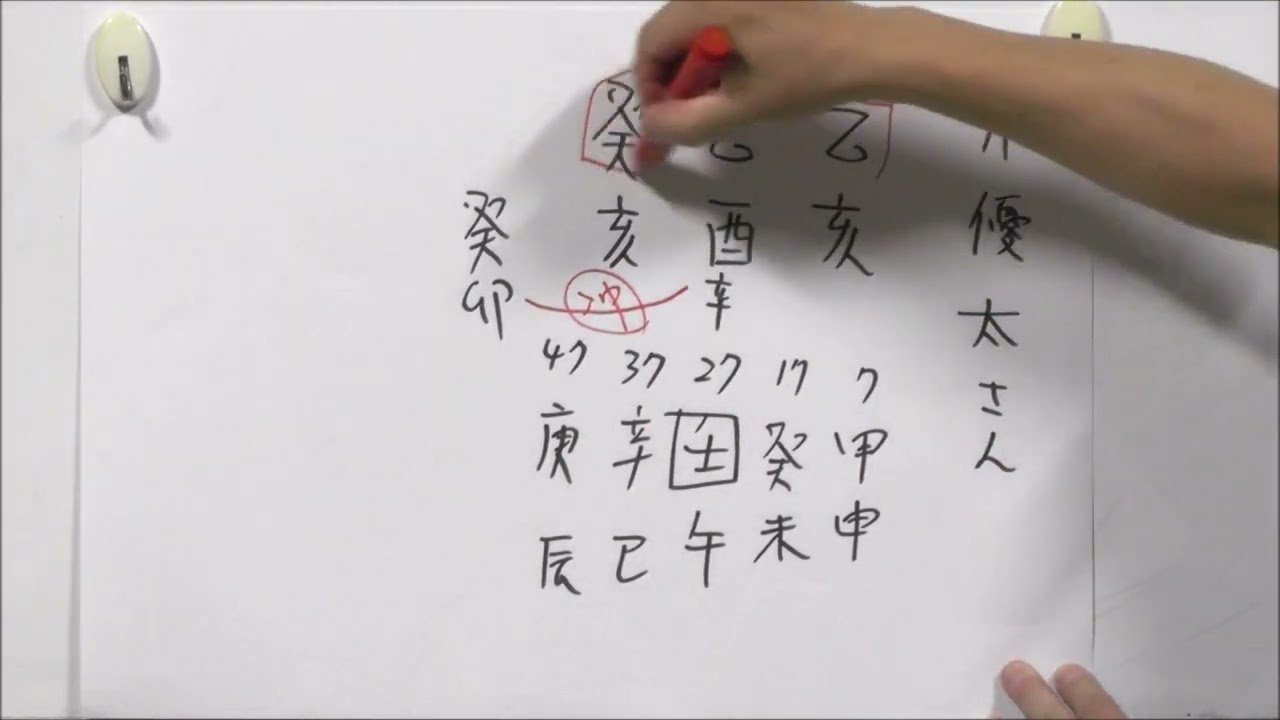 優太さん
癸 乙
癸 亥 酉 亥
卯 冲 辛
47 37 27 17 7
庚 辛 壬 癸 甲
辰 巳 午 未 申